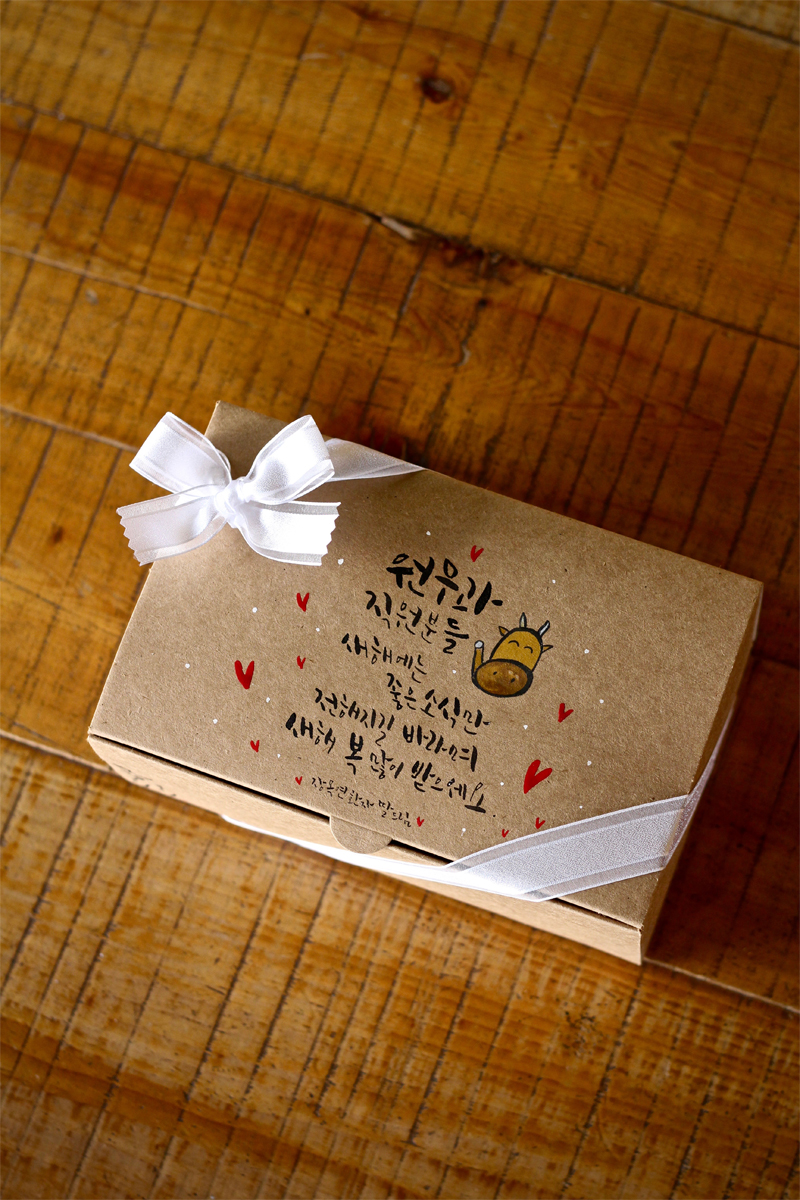 원무과
직원분들
새해에는
좋은 소식만
전해지길 바라며
새해 복 많이 받으세요.
장옥연환자 딸드림